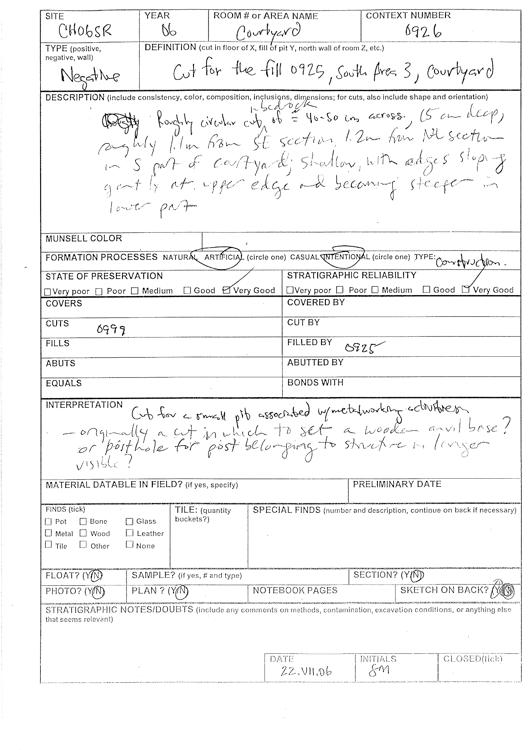 SITE YEAR ROOM # or AREA NAME CONTEXT NUMBER
CH06SR 06 Courtyard 0926
TYPE (positive, negative, wall) DEFINITION (cut in floor of X, fill of pit Y, north wall of room Z, etc.)
Negative Cut for the fill 0925, South Area 3, Courtyard
DESCRIPTION (include consistency, color, composition, inclusions, dimensions; for cuts, also include shape and orientation)
bedrock
Roughly circular cut, of ± 40-50 cm across, 15 cm deep,
roughly 1.1m from SE section 1.2m from NE section
in S part of courtyard; shallow, with edges sloping
gently at upper edge and becoming steeper in
lower part
MUNSELL COLOR
FORMATION PROCESSES NATURAL ARTIFICIAL (circle one) CASUAL INTENTIONAL (circle one) TYPE: Construction.
STATE OF PRESERVATION STRATIGRAPHIC RELIABILITY
Very poor Poor Medium Good Very Good Very poor Poor Medium Good Very Good
COVERS COVERED BY
CUTS 0999 CUT BY
FILLS FILLED BY 0925
ABUTS ABUTTED BY
EQUALS BONDS WITH
INTERPRETATION Cut for a small pit associated w/metalworking activities
– originally a cut in which to set a wooden anvil base?
or posthole for post belonging to structure no longer
visible?
MATERIAL DATABLE IN FIELD? (if yes, specify) PRELIMINARY DATE
FINDS (tick) TILE: (quantity buckets?) SPECIAL FINDS (number and description, continue on back if necessary)
Pot Bone Glass
Metal Wood Leather
Tile Other None
FLOAT? (Y/N) SAMPLE? (if yes, # and type) SECTION? (Y/N)
PHOTO? (Y/N) PLAN ? (Y/N) NOTEBOOK PAGES SKETCH ON BACK?
STRATIGRAPHIC NOTES/DOUBTS (include any comments on methods, contamination, excavation conditions, or anything else
that seems relevant)
DATE INITIALS CLOSED(tick)
22.VII.06 SM